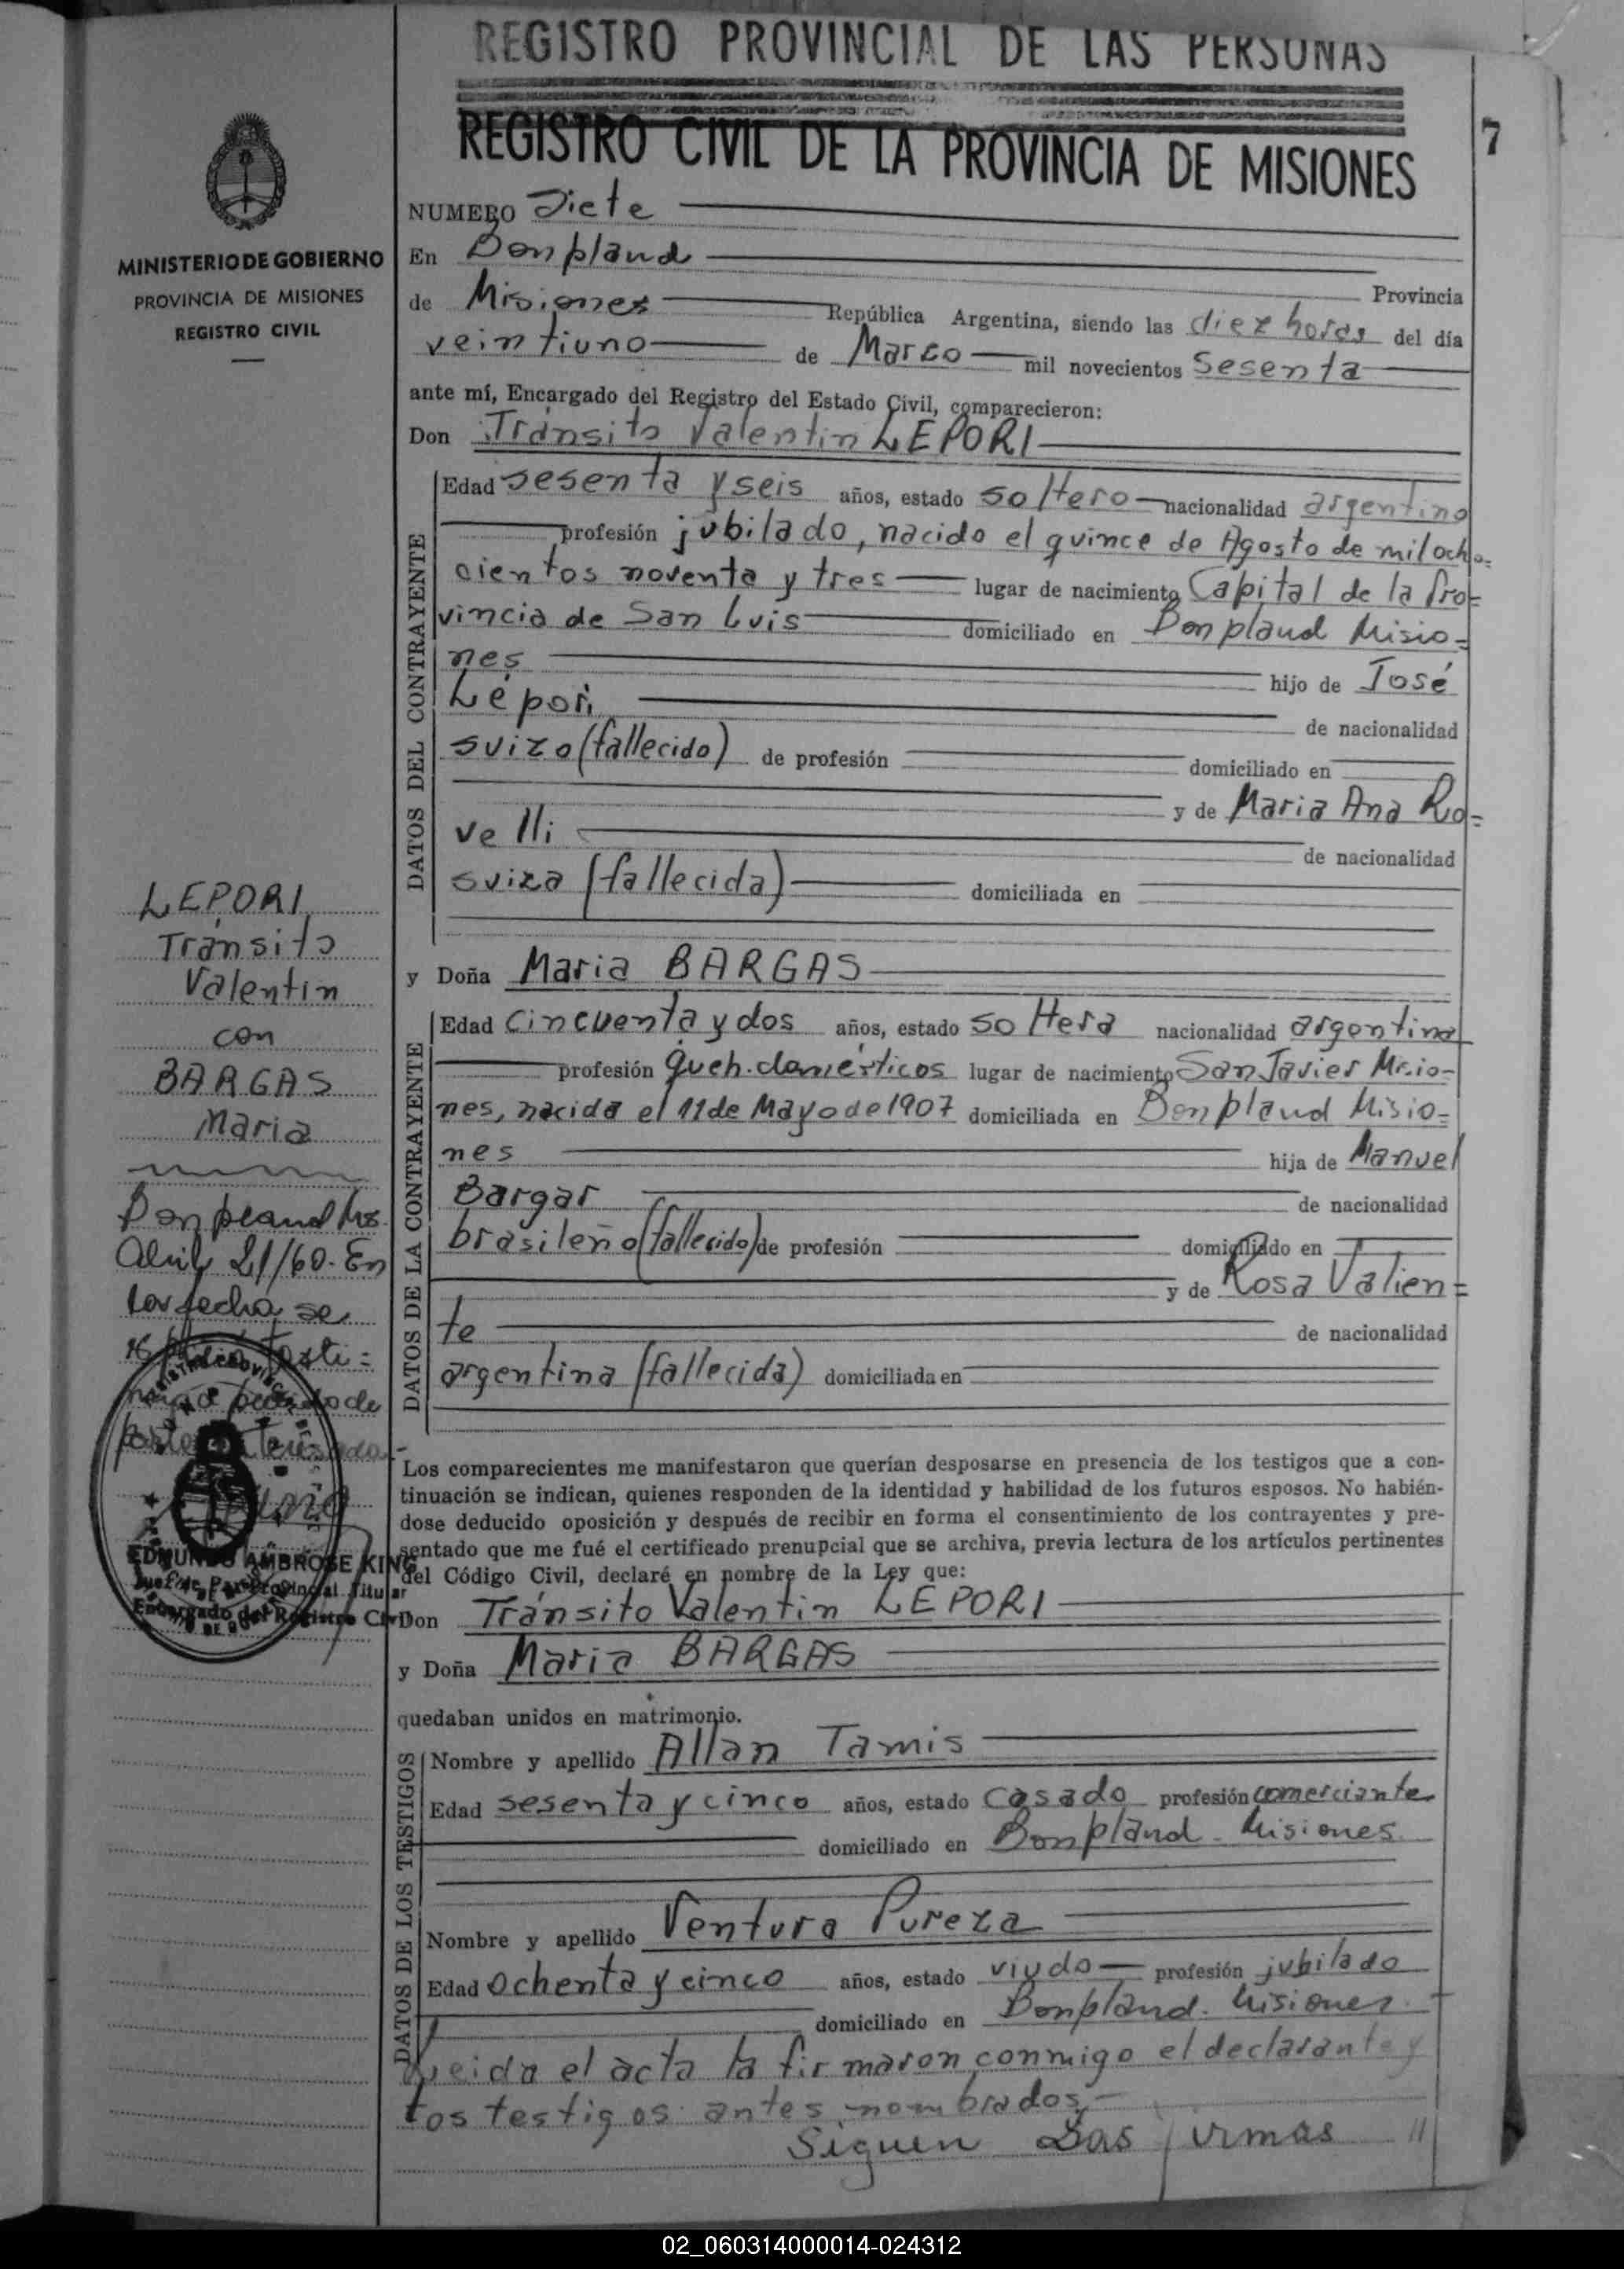 REGISTRO PROVINCIAL DE LAS PERSONAS
REGISTRO CIVIL DE LA PROVINCIA DE MISIONES
7
MINISTERIO DE GOBIERNO
PROVINCIA DE MISIONES
REGISTRO CIVIL
NUMERO Siete
En Bonpland
Provincia
de Misiones República Argentina, siendo las diez horas del día
veintiuno de Marzo mil novecientos Sesenta
ante mí, Encargado del Registro del Estado Civil, comparecieron:
Don Tránsito Valentin LEPORI
DATOS DEL CONTRAYENTE
Edad sesenta y seis años, estado soltero nacionalidad argentino
profesión jubilado, nacido el quince de Agosto de mil ocho=
cientos noventa y tres lugar de nacimiento Capital de la Pro=
vincia de San Luis domiciliado en Bonpland Misio=
nes hijo de José
Lépori de nacionalidad
suizo (fallecido) de profesión domiciliado en
y de Maria Ana Ro=
velli de nacionalidad
suiza (fallecida) domiciliada en
y Doña Maria BARGAS
DATOS DE LA CONTRAYENTE
Edad cincuenta y dos años, estado soltera nacionalidad argentina
profesión Queh. domésticos lugar de nacimiento San Javier Misio-
nes, nacida el 11 de Mayo de 1907 domiciliada en Bonpland Misio=
nes hija de Manuel
Bargas de nacionalidad
brasileño (fallecido) de profesión domiciliado en
y de Rosa Valien=
te de nacionalidad
argentina (fallecida) domiciliada en
LEPORI
Tránsito
Valentin
con
BARGAS
Maria
Bonpland Ms.
Abril 21/60. En
la fecha se
testi=
pedido de
parte interesada
EDMUNDO AMBROSE KING
Juez de Paz Provincial Titular
Encargado del Registro Civil
Los comparecientes me manifestaron que querían desposarse en presencia de los testigos que a con-
tinuación se indican, quienes responden de la identidad y habilidad de los futuros esposos. No habién-
dose deducido oposición y después de recibir en forma el consentimiento de los contrayentes y pre-
sentado que me fué el certificado prenupcial que se archiva, previa lectura de los artículos pertinentes
del Código Civil, declaré en nombre de la Ley que:
Don Tránsito Valentin LEPORI
y Doña Maria BARGAS
quedaban unidos en matrimonio.
DATOS DE LOS TESTIGOS
Nombre y apellido Allan Tamis
Edad sesenta y cinco años, estado casado profesión comerciante
domiciliado en Bonpland - Misiones
Nombre y apellido Ventura Pureza
Edad ochenta y cinco años, estado viudo profesión jubilado
domiciliado en Bonpland. Misiones.
Leida el acta la firmaron conmigo el declarante y
los testigos antes nombrados,-
Siguen Las firmas //
02_060314000014-024312